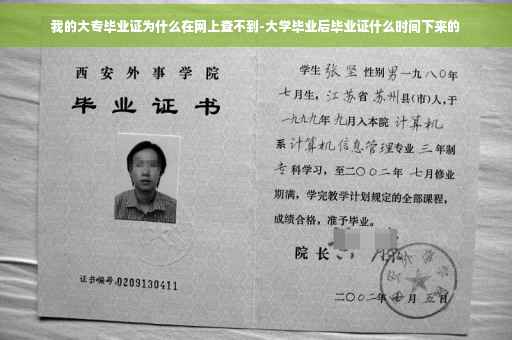 我的大专毕业证为什么在网上查不到-大学毕业后毕业证什么时间下来的
西安外事学院
毕业证书
证书编号:0209130411
学生张坚性别男一九八〇年
七月生，江苏省苏州县(市)人,于
一九九九年九月入本院计算机
系计算机信息管理专业三年制
专科学习，至二〇〇二年七月修业
期满，学完教学计划规定的全部课程，
成绩合格，准予毕业。
院长
二〇〇二年 月五日